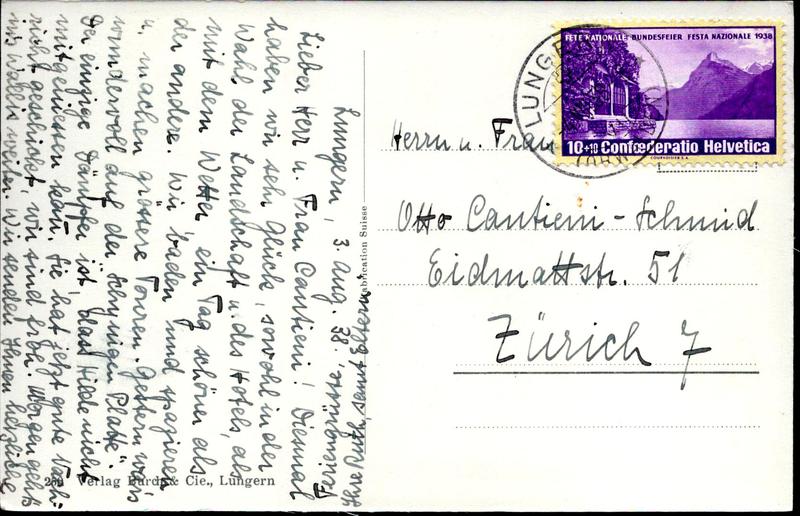 Lungern, 3. Aug. 38.
Lieber Herr u. Frau Cantieni! Diesmal
haben wir sehr Glück, sowohl in der
Wahl der Landschaft u. des Hotels, als
mit dem Wetter ein Tag schöner als
der andere. Wir baden und spazieren
u. machen grössere Touren. Gestern war's
wundervoll auf der "Schynigen Platte".
Der einzige Dämpfer ist, dass Hilde nicht
mitgeniessen kann. Sie hat jetzt gute Nach-
richt geschickt, wir sind froh. Morgen geht's
ins Wallis weiter. Wir senden Ihnen herzliche
Feriengrüsse
Ihre Ruth, samt Eltern
260 Verlag Burch & Cie., Lungern
Fabrication Suisse
FETE NATIONALE BUNDESFEIER FESTA NAZIONALE 1938
10+10 Confœderatio Helvetica
COURVOISIER S.A.
LUNGERN
Herrn u. Frau
Otto Cantieni-Schmid
Eidmattstr. 51
Zürich 7